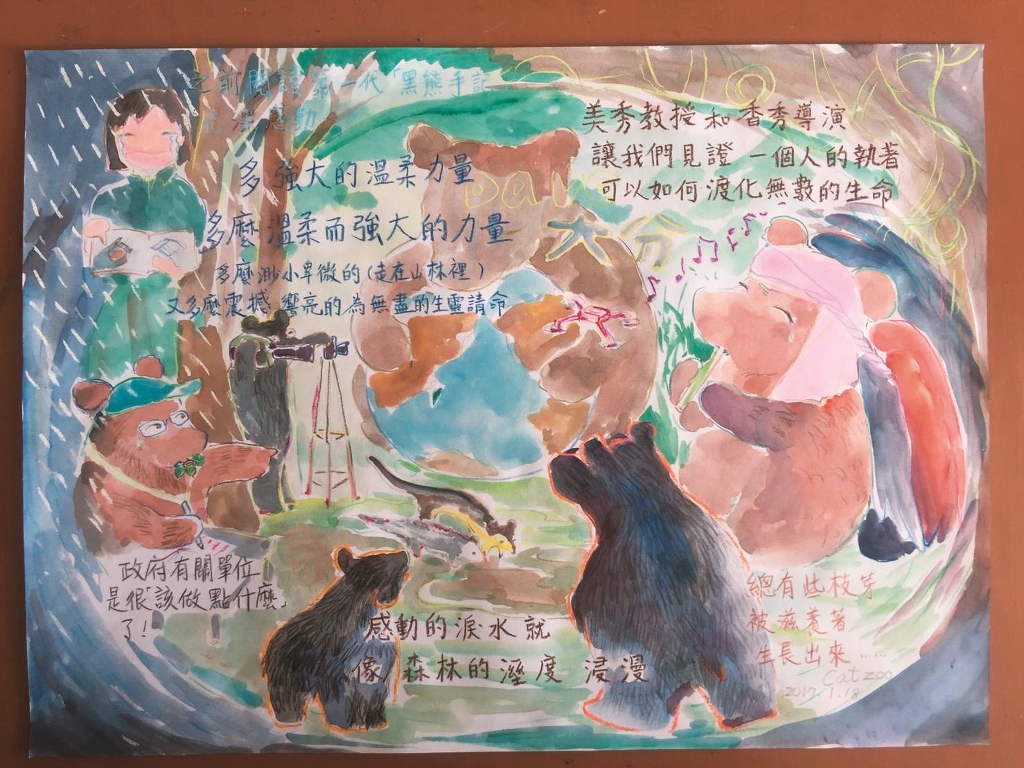 之前閱讀第一代「黑熊手記」
感動
多強大的溫柔力量
多麼溫柔而強大的力量
多麼渺小卑微的(走在山林裡)
又多麼震撼 響亮的為無盡的生靈請命
美秀教授和香秀導演
讓我們見證 一個人的執著
可以如何渡化無數的生命
大分
政府有關單位
是很「該做點什麼」
了!
感動的淚水就
像森林的溼度 浸漫
總有些枝芽
被滋養著
生長出來.....
Cat zoo
2017.1.18